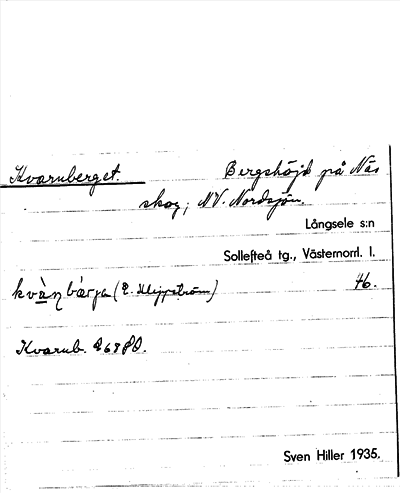 Kvarnberget. Bergshöjd på Näs
skog; NV. Nordsjön.
Långsele s:n
Sollefteå tg., Västernorrl. l.
kvàn bárja (E. Klippström) 46.
Kvarnb.
Sven Hiller 1935.